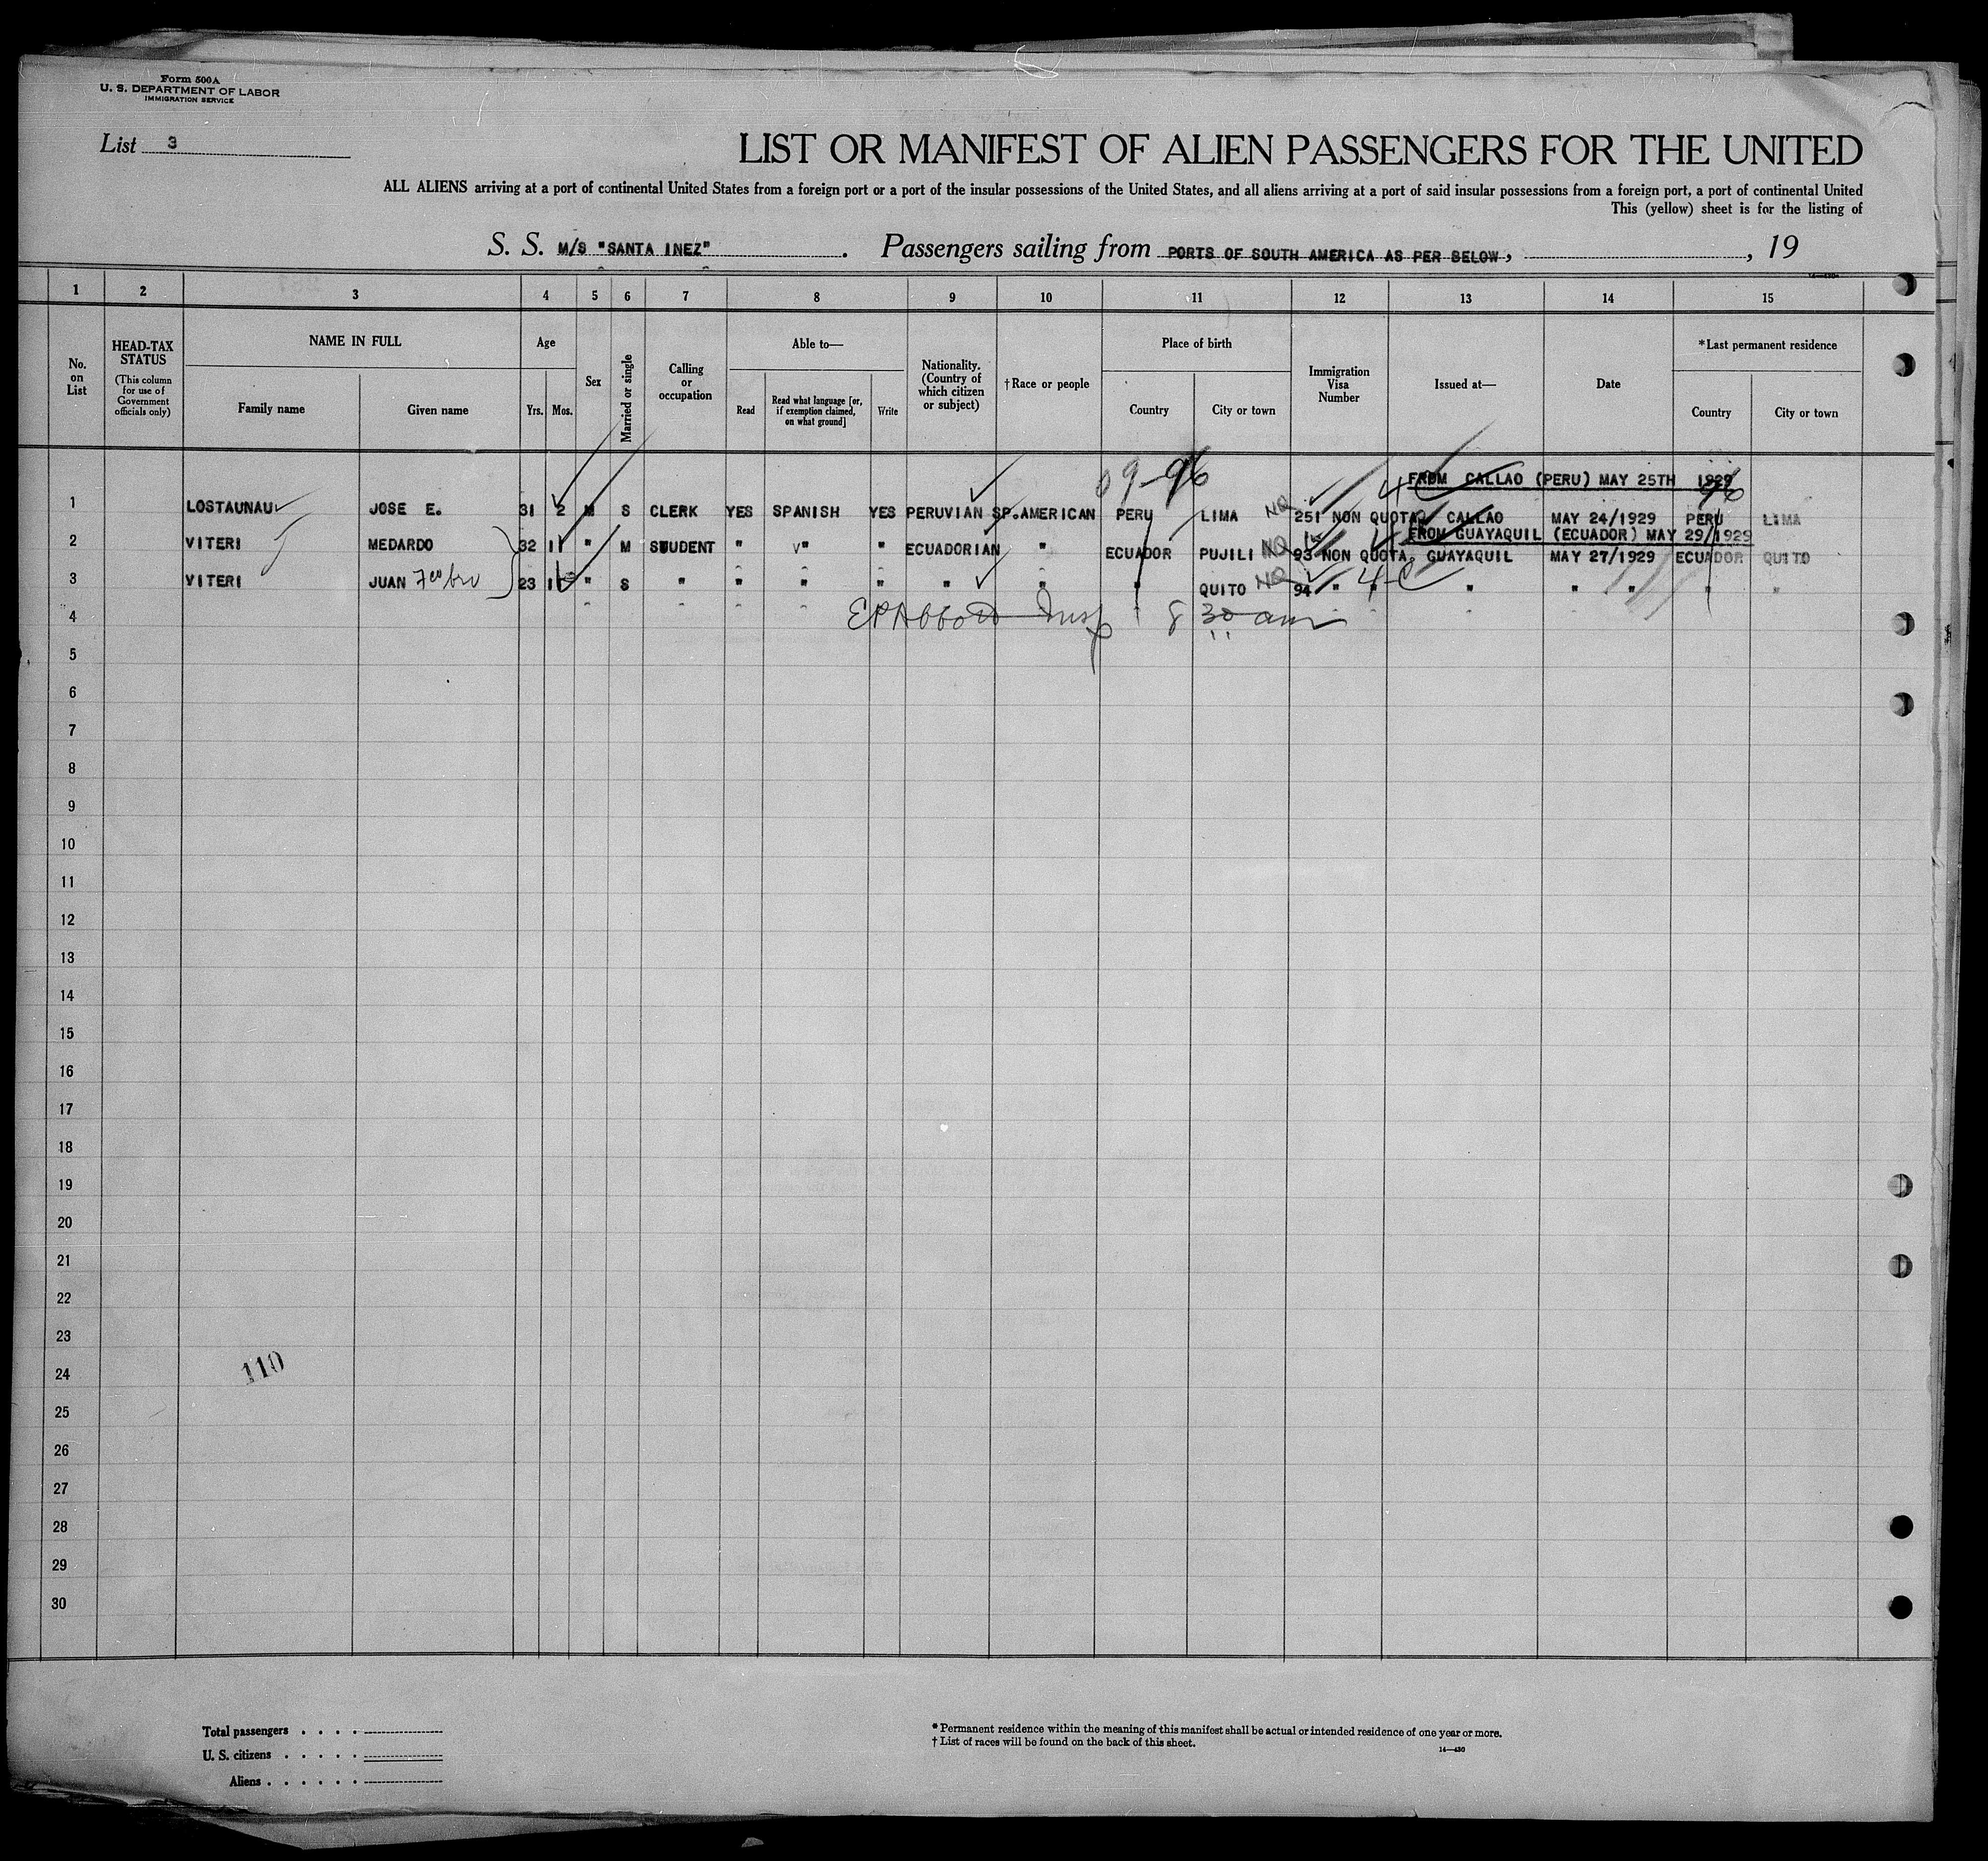 Form 500A
U. S. DEPARTMENT OF LABOR
IMMIGRATION SERVICE
List 3
LIST OR MANIFEST OF ALIEN PASSENGERS FOR THE UNITED
ALL ALIENS arriving at a port of continental United States from a foreign port or a port of the insular possessions of the United States, and all aliens arriving at a port of said insular possessions from a foreign port, a port of continental United
This (yellow) sheet is for the listing of
S. S. M/S "SANTA INEZ" . Passengers sailing from PORTS OF SOUTH AMERICA AS PER BELOW, , 19
1 2 3 4 5 6 7 8 9 10 11 12 13 14 15
No. on List
HEAD-TAX STATUS
(This column for use of Government officials only)
NAME IN FULL
Family name Given name
Age
Yrs. Mos.
Sex
Married or single
Calling or occupation
Able to—
Read Read what language [or, if exemption claimed, on what ground] Write
Nationality. (Country of which citizen or subject)
†Race or people
Place of birth
Country City or town
Immigration Visa Number
Issued at—
Date
*Last permanent residence
Country City or town
09-96
FROM CALLAO (PERU) MAY 25TH 1929
96
1 LOSTAUNAU JOSE E. 31 2 M S CLERK YES SPANISH YES PERUVIAN SP.AMERICAN PERU LIMA NQ 251 NON QUOTA, CALLAO MAY 24/1929 PERU LIMA
FROM GUAYAQUIL (ECUADOR) MAY 29/1929
2 VITERI MEDARDO 32 11 " M STUDENT " " " ECUADORIAN " ECUADOR PUJILI NQ 93 NON QUOTA, GUAYAQUIL MAY 27/1929 ECUADOR QUITO
3 VITERI JUAN 23 11 " S " " " " " " " QUITO NQ 94 " " 4-C " " " " "
4 E P Abbott Insp 8 30 am
5
6
7
8
9
10
11
12
13
14
15
16
17
18
19
20
21
22
23
24 110
25
26
27
28
29
30
Total passengers . . . .
U. S. citizens . . . . .
Aliens . . . . . .
* Permanent residence within the meaning of this manifest shall be actual or intended residence of one year or more.
† List of races will be found on the back of this sheet.
14—430